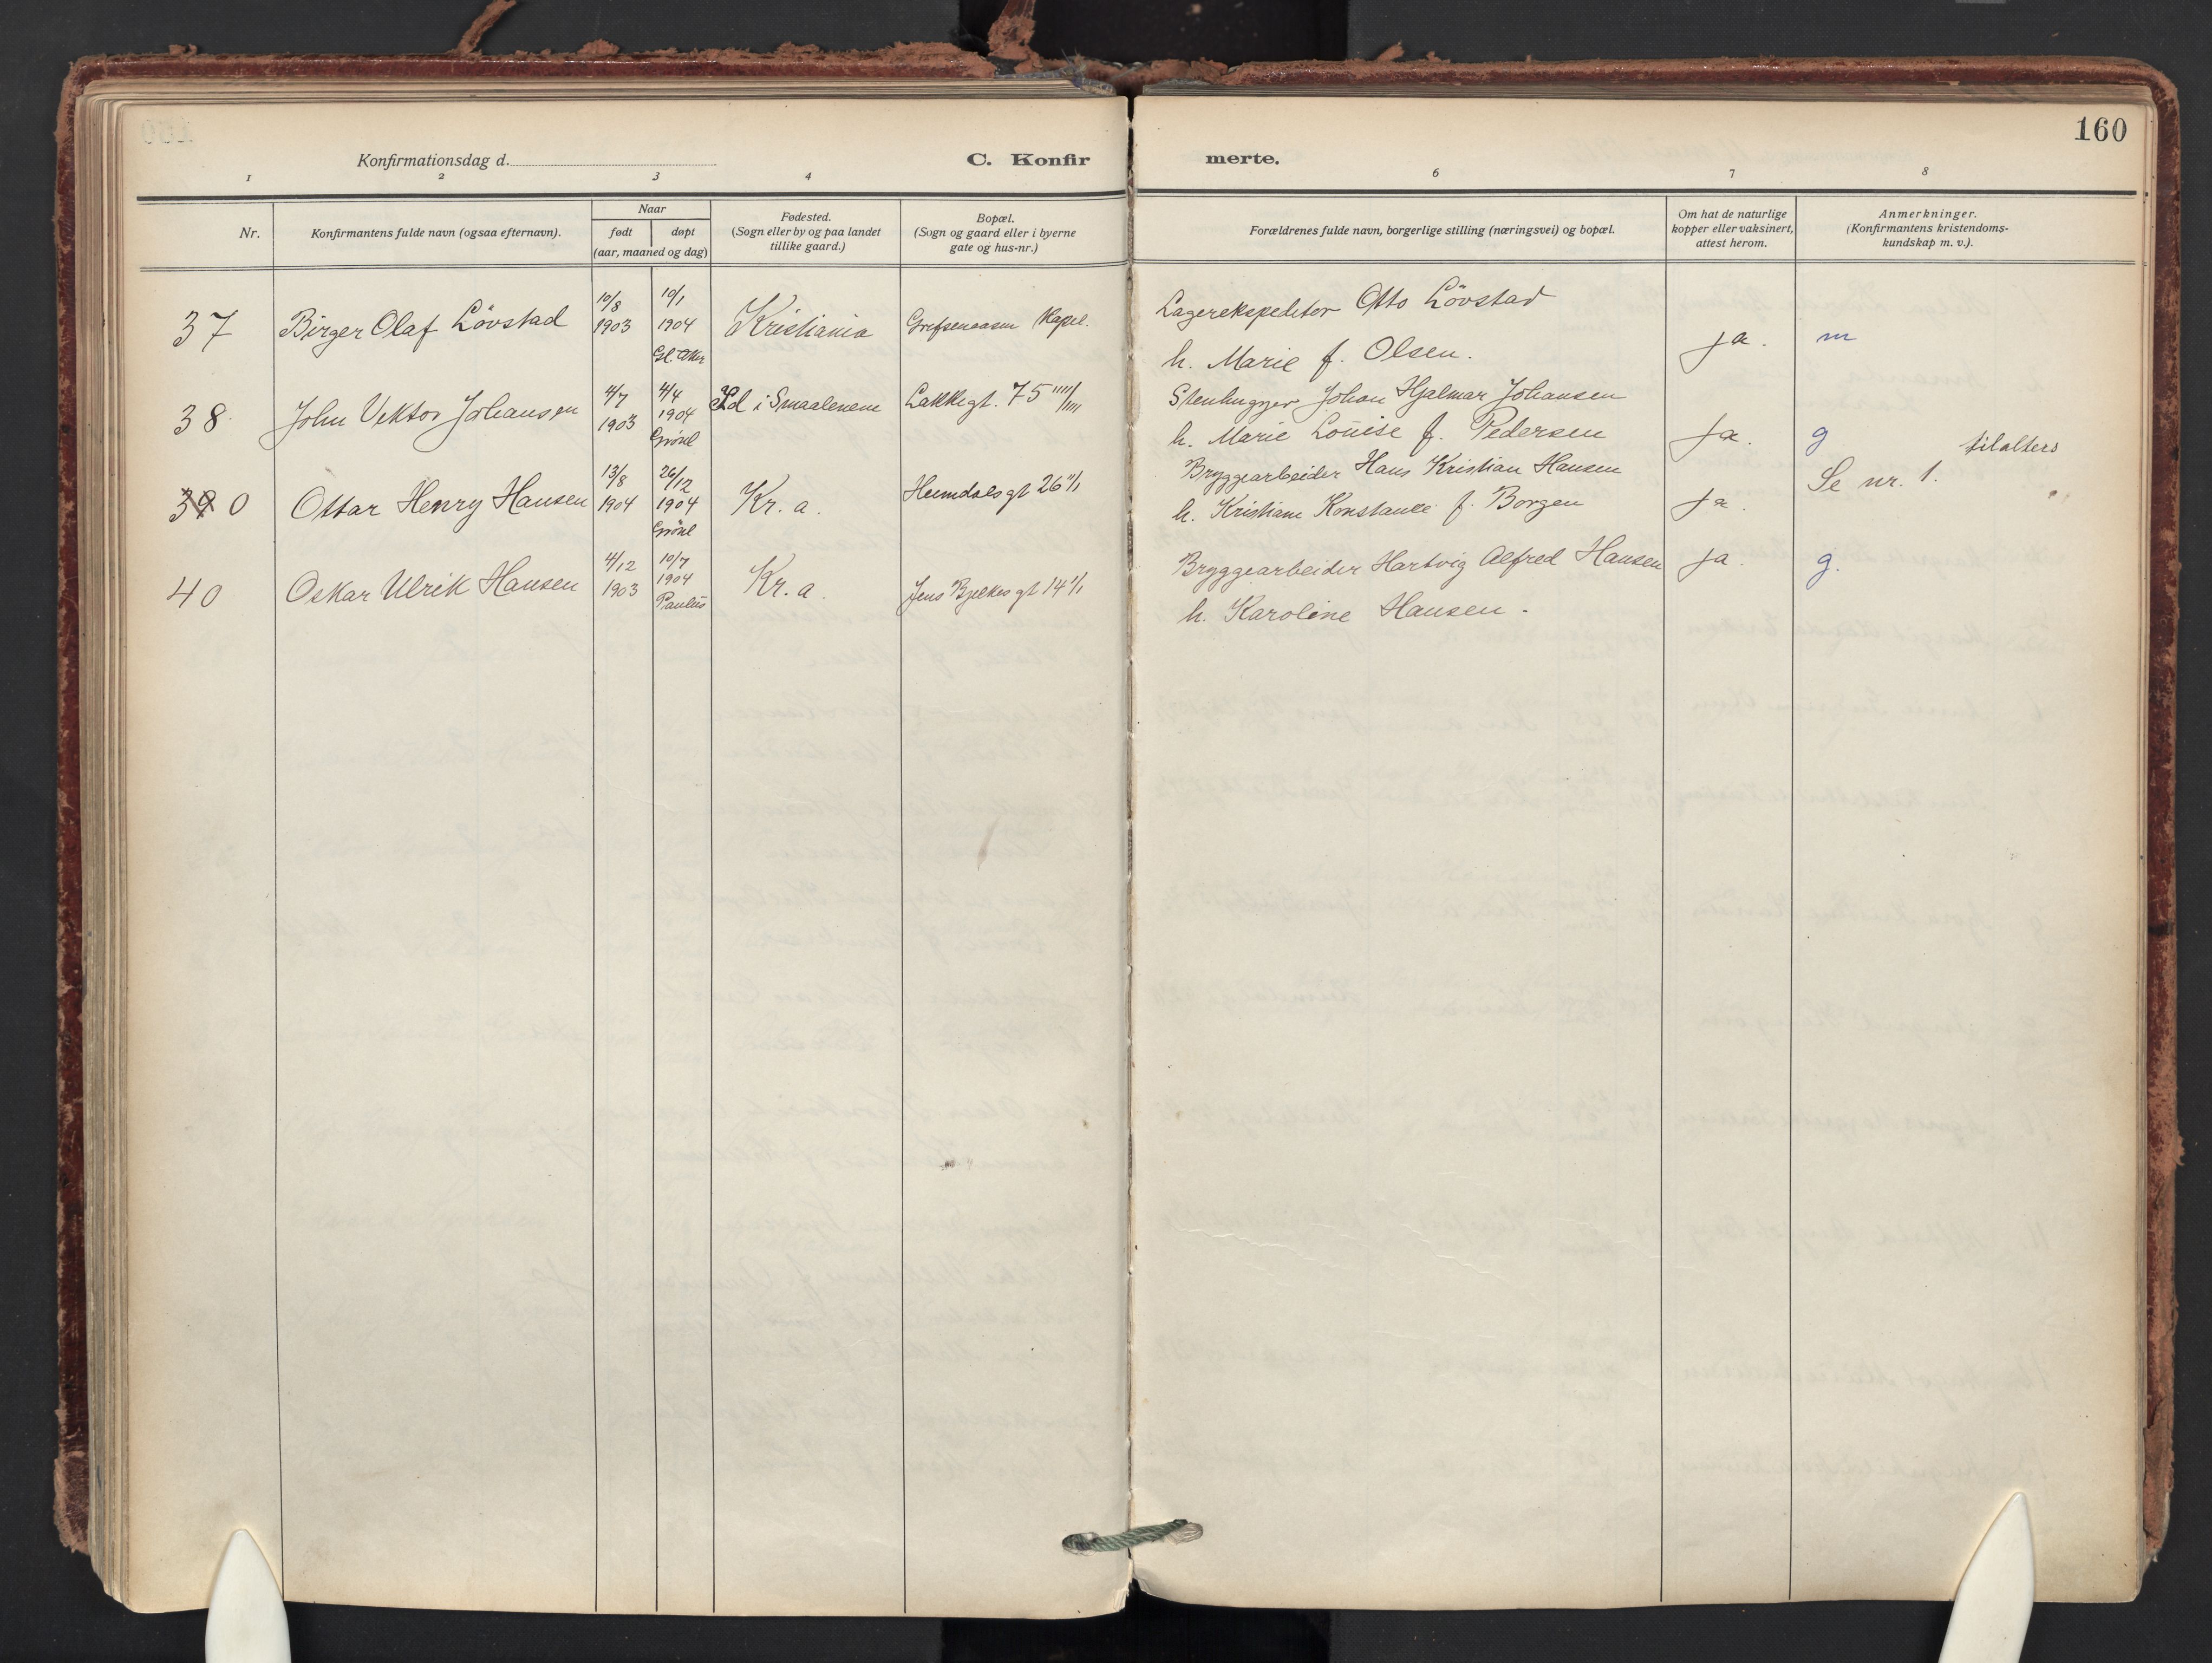 160
Konfirmationsdag d.
C. Konfirmerte.
1 2 3 4 6 7 8
Nr.
Konfirmantens fulde navn (ogsaa efternavn).
Naar
født døpt
(aar, maaned og dag)
Fødested.
(Sogn eller by og paa landet
tillike gaard.)
Bopæl.
(Sogn og gaard eller i byerne
gate og hus-nr.)
Forældrenes fulde navn, borgerlige stilling (næringsvei) og bopæl.
Om hat de naturlige
kopper eller vaksinert,
attest herom.
Anmerkninger.
(Konfirmantens kristendoms-
kundskap m. v.).
37 Birger Olaf Lövstad 10/8 1903 10/1 1904 Gl. Aker Kristiania Grefsenaasen Kapel.
Lagerekspeditør Otto Lövstad
h. Marie f. Olsen. ja. m
38. John Viktor Johansen 4/7 1903 4/4 1904 Grönl Id i Smaalenene Lakkegt. 75
Stenhugger Johan Hjalmar Johansen
h. Marie Louise f. Pedersen ja. g
39 0 Ottar Henry Hansen 13/8 1904 26/12 1904 Grönl Kr. a. Heimdalsgt 26 II/1
Bryggearbeider Hans Kristian Hansen
h. Kristiane Konstance f. Borgen ja. Se nr. 1. tilalters
40 Oskar Ulrik Hansen 4/12 1903 10/7 1904 Paulus Kr. a. Jens Bjelkes gt 14 II/1
Bryggearbeider Hartvig Alfred Hansen ja. g.
h. Karoline Hansen.